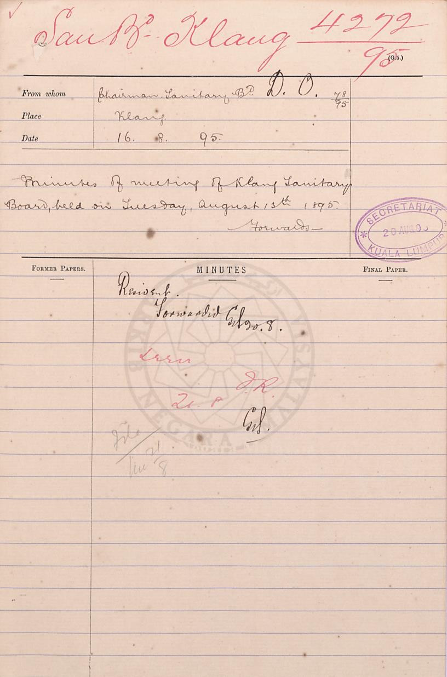 San Bd. Klang 4272/95
(95)
From whom Chairman Sanitary Bd. D. O. 78/95
Place Klang
Date 16. 8. 95.
Minutes of meeting of Klang Sanitary
Board, held on Tuesday, August 13th 1895.
Forwards
SECRETARIAT
KUALA LUMPUR
FORMER PAPERS. MINUTES FINAL PAPER.
Resident.
Forwarded 20.8.
Seen
20.8
File
NEGARA